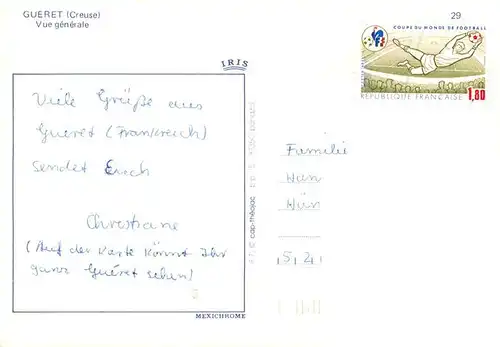 GUERET (Creuse)
Vue générale
29
COUPE DU MONDE DE FOOTBALL
REPUBLIQUE FRANÇAISE 1,80
IRIS
Viele Grüße aus
Gueret (Frankreich)
sendet Euch
Christiane
(Auf der Karte könnt Ihr
ganz Guéret sehen)
Familie
Han
Hür
5 2
cap-théojac
MEXICHROME